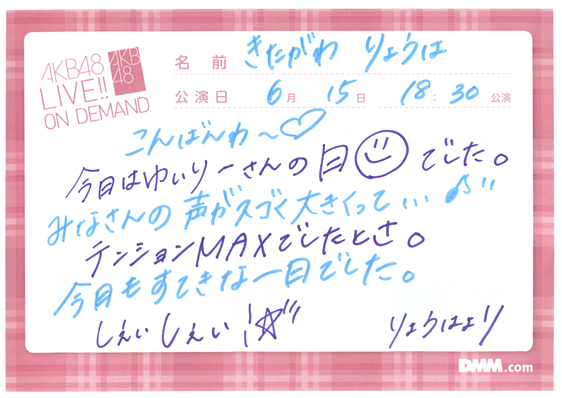 AKB48
LIVE!!
ON DEMAND
AKB
48
名前 きたがわ りょうは
公演日 6月 15日 18:30 公演
こんばんわ〜♡
今日はゆいりーさんの日☺でした。
みなさんの声がスゴく大きくって… ♪"
テンションMAXでしたとさ。
今日もすてきな一日でした。
しえいしえい!☆"
りょうはより
DMM.com